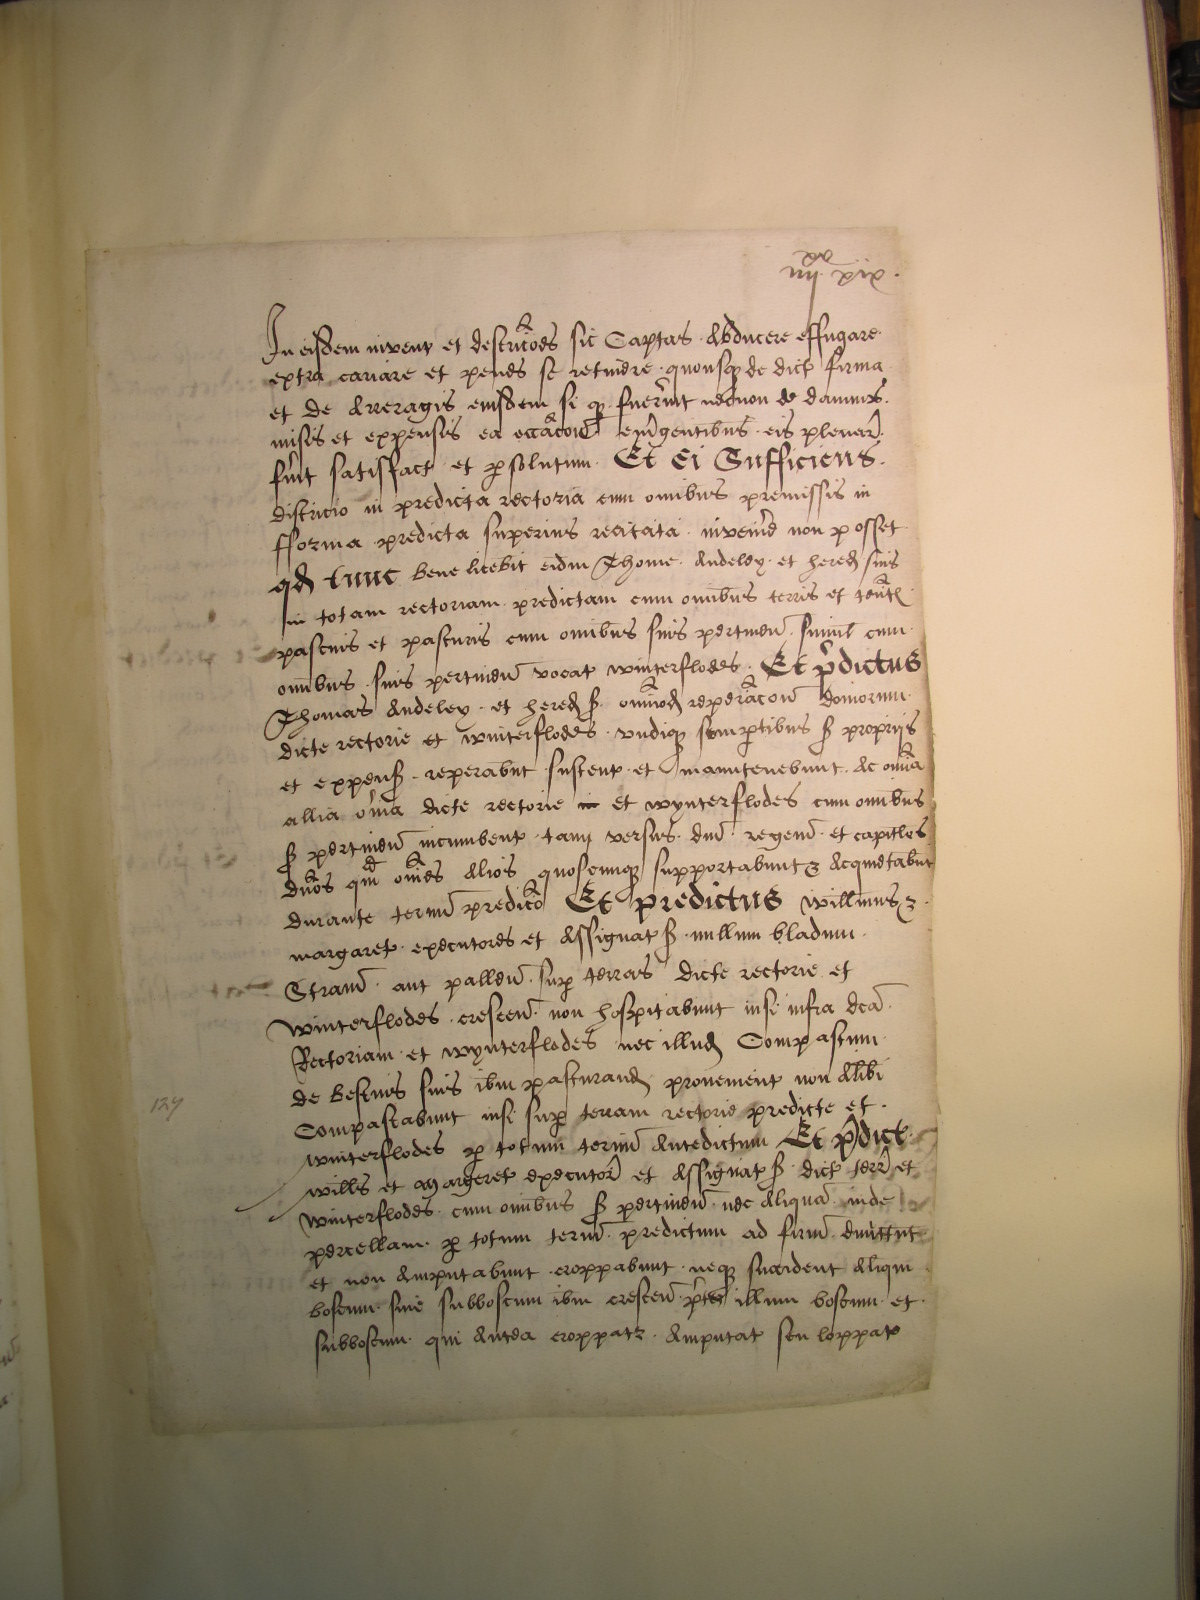 xx
iiij xix.
In eisdem invent et destriccōes sic Captas. Abducere effugare
extra cariare et penes se retinere. quousq de dict firma
et de Arreragis eiusdem si q. fuerint necnon de dampnis.
misis et expensis ea occacōn emgentibus. eis plenar.
fuit satisfact et psolutum. Et Si Sufficiens.
districio in predicta rectoria cum omibus premissis in
fforma predicta superius recitata. inveniri non posset
qd tunc bene licebit eidm Thome. Andeley. et hered suis
in totam rectoriam predictam cum omibus terris et tentis
pascuis et pasturis cum omibus suis pertinen. simul cum
omibus. suis pertinen vocat winterflodes. Et pdictus
Thomas Andeley. et hered s. omimod reperacon domorum
dicte rectorie et winterflodes. undiq sumptibus s proprijs
et expens. reperabnt sustent. et manutenebunt. Ac omia
allia onia dicte rectorie in et wynterflodes cum omibus
s pertinen incumbent. tam versus. dnm. regem. et capitles
dnos qm omes Alios quoscumq supportabunt z Acquietabnt
durante termin predicto Et predictus willmus z.
margaret. executores et Assignat s. nullum bladum.
Stram. aut palleu. sup terras dicte rectorie et
winterflodes. crescen. non hospitabunt nisi infra dca.
Rectoriam. et wynterflodes nec illud Compastum
de bestiis suis ibm pasturand. provenient non Alibi
Compastabunt nisi sup terram rectorie predicte et.
winterflodes p totum termin Antedictum Et pdict.
wills et Margeret executor et Assignat s. dict terr et
winterflodes. cum omibus s pertinen. nec Aliqua inde
percellam. p totum termin. predictum ad firm. dmittnt
et non Amputabunt croppabunt. neq succident Aliqm
boscum. sive subboscum ibm crescen. pter illum boscum. et.
subboscum. qui Antea croppatz. Amputat seu loppat
129